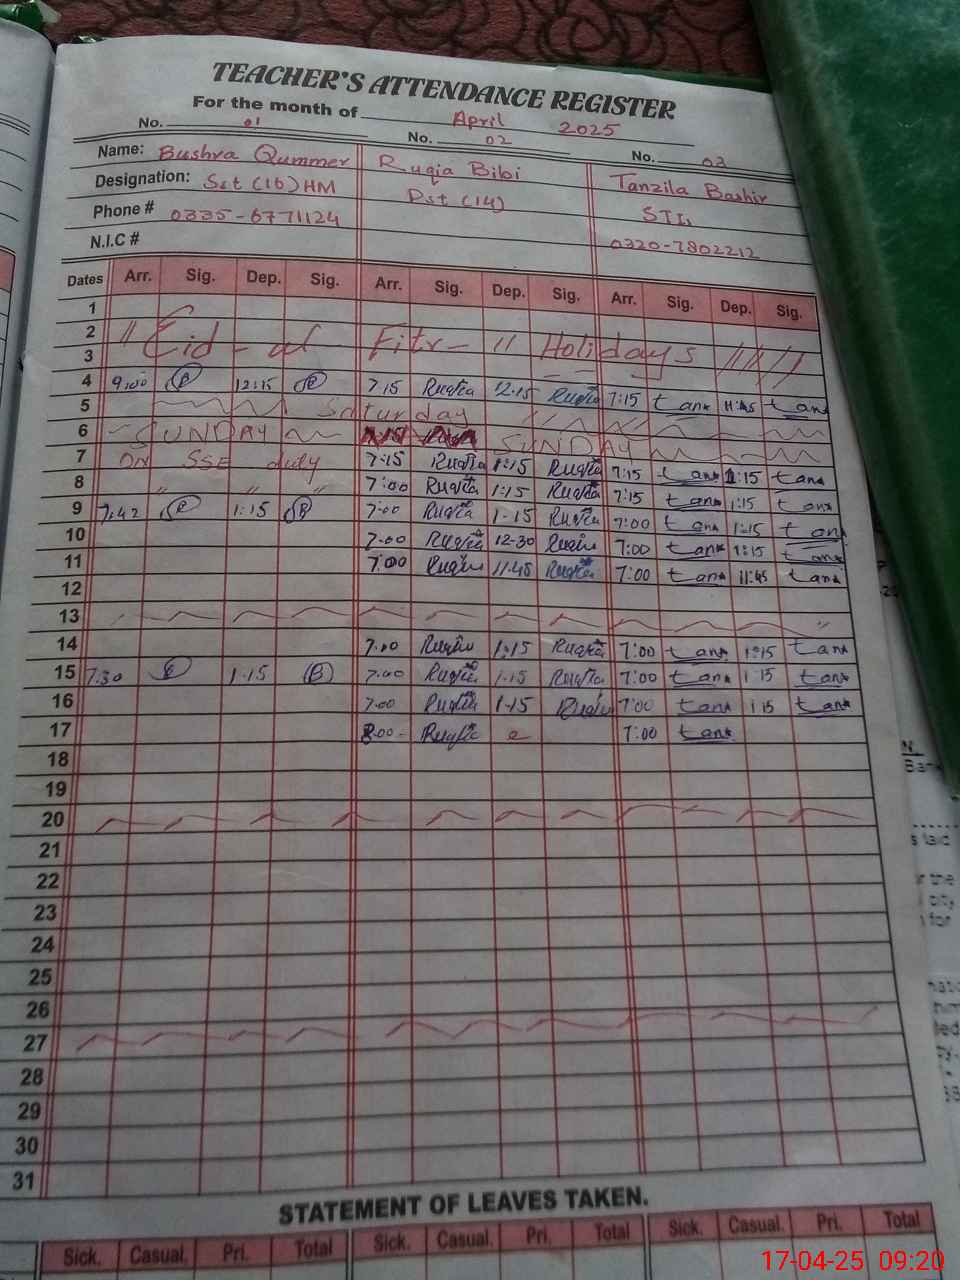 TEACHER'S ATTENDANCE REGISTER
For the month of April 2025
No. 01 No. 02 No. 03
Name: Bushra Qummer Ruqia Bibi Tanzila Bashir
Designation: Sst (16) HM Pst (14) STI,
Phone # 0335-6771124 0320-7802212
N.I.C #
Dates Arr. Sig. Dep. Sig. Arr. Sig. Dep. Sig. Arr. Sig. Dep. Sig.
1
2 " Eid - ul - Fitr - " Holidays
3
4 9:00 12:15 7:15 Ruqia 12.15 Ruqia 7:15 tanz 11:45 tanz
5 Saturday
6 SUNDAY SUNDAY
7 On SSE duty 7:15 Ruqia 1:15 Ruqia 7:15 tanz 1:15 tanz
8 " " " 7:00 Ruqia 1:15 Ruqia 7:15 tanz 1:15 tanz
9 7:42 1:15 7:00 Ruqia 1-15 Ruqia 7:00 tanz 1:15 tanz
10 7.00 Ruqia 12-30 Ruqia 7:00 tanz 1:15 tanz
11 7:00 Ruqia 11.45 Ruqia 7:00 tanz 11:45 tanz
12
13
14 7.00 Ruqia 1:15 Ruqia 7:00 tanz 1:15 tanz
15 7.30 1.15 7.00 Ruqia 1.15 Ruqia 7:00 tanz 1:15 tanz
16 7.00 Ruqia 1-15 Ruqia 7:00 tanz 1:15 tanz
17 8.00 Ruqia 7:00 tanz
18
19
20
21
22
23
24
25
26
27
28
29
30
31
STATEMENT OF LEAVES TAKEN.
Sick. Casual. Pri. Total Sick. Casual. Pri. Total Sick. Casual. Pri. Total
17-04-25 09:20